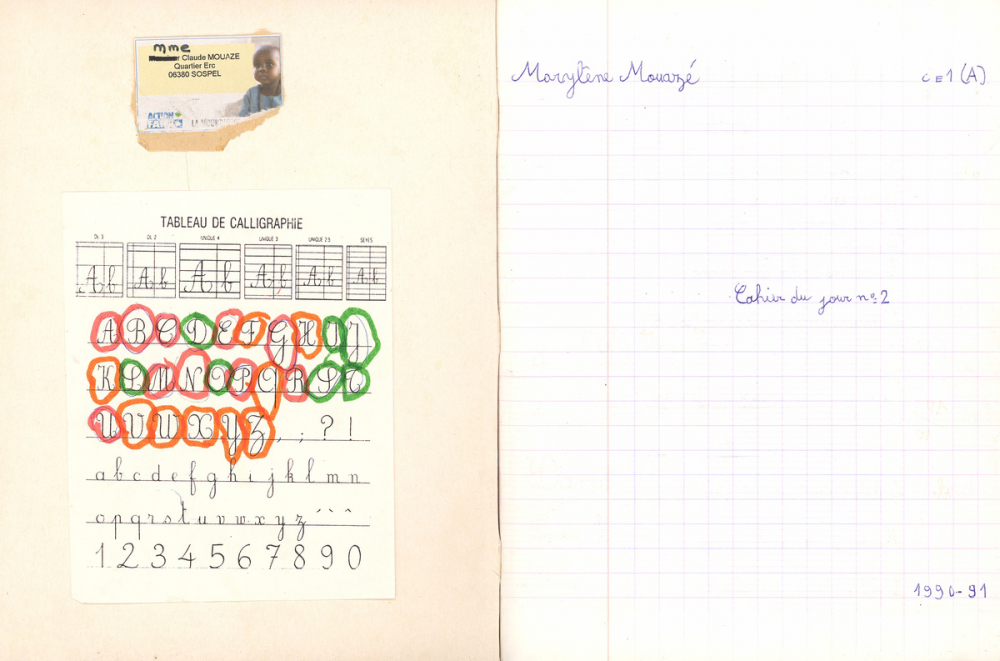 mme
r Claude MOUAZE
Quartier Erc
06380 SOSPEL
ACTION
FAIM
LA
TABLEAU DE CALLIGRAPHIE
DL 3 DL 2 UNIQUE 4 UNIQUE 3 UNIQUE 2.5 SEYES
A b A b A b A b A b A b
A B C D E F G H I J
K L M N O P Q R S T
U V W X Y Z , ; ? !
a b c d e f g h i j k l m n
o p q r s t u v w x y z ´ ` ^
1 2 3 4 5 6 7 8 9 0
Marylène Mouazé CE1 (A)
Cahier du jour n° 2
1990-91